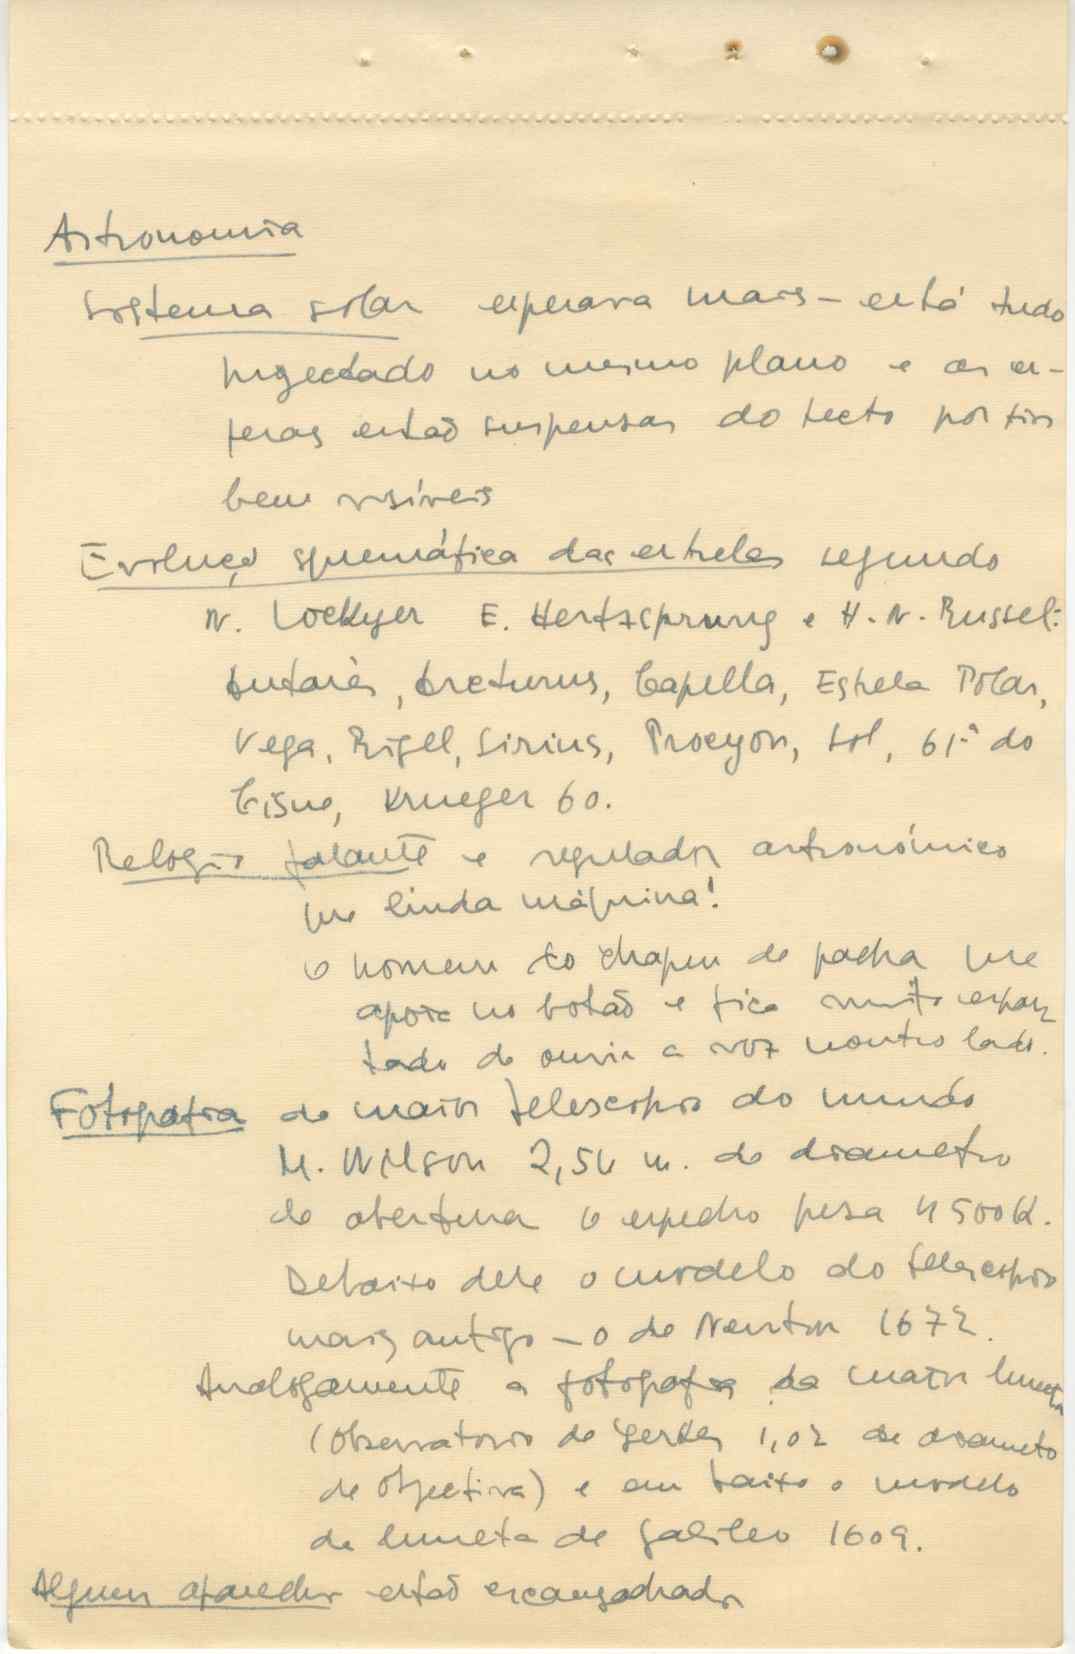 Astronomia
Sistema solar esperava mais – está tudo
projectado no mesmo plano e as es-
feras estão suspensas do tecto por fios
bem visíveis
Evolução squemática das estrelas segundo
N. Lockyer E. Hertzsprung e H. N. Russel:
Antarès, Arcturus, Capella, Estrela Polar,
Vega, Rigel, Sirius, Procyon, Sol, 61ª do
Cisne, Krueger 60.
Relogio falante e regulador astronómico
que linda máquina!
O homem do chapeu de pacha que
apoia no botão e fica muito espan
tado de ouvir a voz noutro lado.
Fotografia do maior telescopio do mundo
M. Wilson 2,54 m. de diametro
de abertura O espelho pesa 4500 K.
Debaixo dele o modelo do telescopio
mais antigo – o de Newton 1672.
Analogamente a fotografia da maior luneta
(Observatorio de Yerkes 1,02 de diametro
de objectiva) e em baixo o modelo
da luneta de Galileo 1609.
Alguns aparelhos estão escangalhados